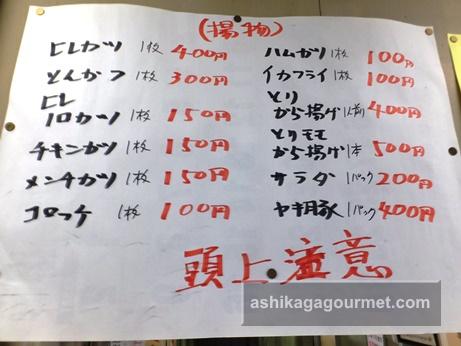 (揚物)
ヒレカツ 1枚 400円
とんかつ 1枚 300円
ヒレ
一口カツ 1枚 150円
チキンカツ 1枚 150円
メンチカツ 1枚 150円
コロッケ 1枚 100円
ハムカツ 1枚 100円
イカフライ 1枚 100円
とり
から揚げ 1人前 400円
とりモモ
から揚げ 1本 500円
サラダ 1パック 200円
ヤキ豚 1パック 400円
頭上注意
ashikagagourmet.com